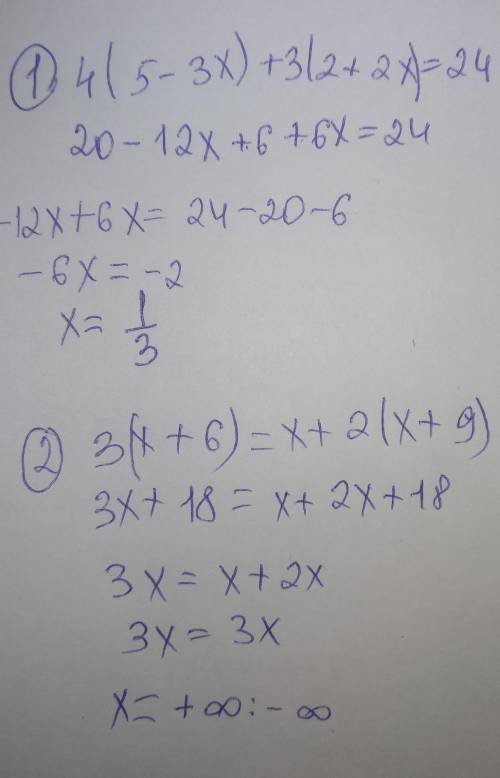 ① 4(5-3x)+3(2+2x)=24
20-12x+6+6x=24
-12x+6x=24-20-6
-6x=-2
x=1/3
② 3(x+6)=x+2(x+9)
3x+18=x+2x+18
3x=x+2x
3x=3x
x=+∞:-∞